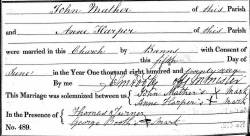 John Mather of this Parish
and
Anne Harper of this Parish
were married in this Church by Banns with Consent of
this fifth Day of
June in the Year One thousand eight hundred and twenty
By me
This Marriage was solemnized between us John Mather's X mark
Anne Harper's X mark
In the Presence of Thomas Turner
George Booth's X mark
No. 489.